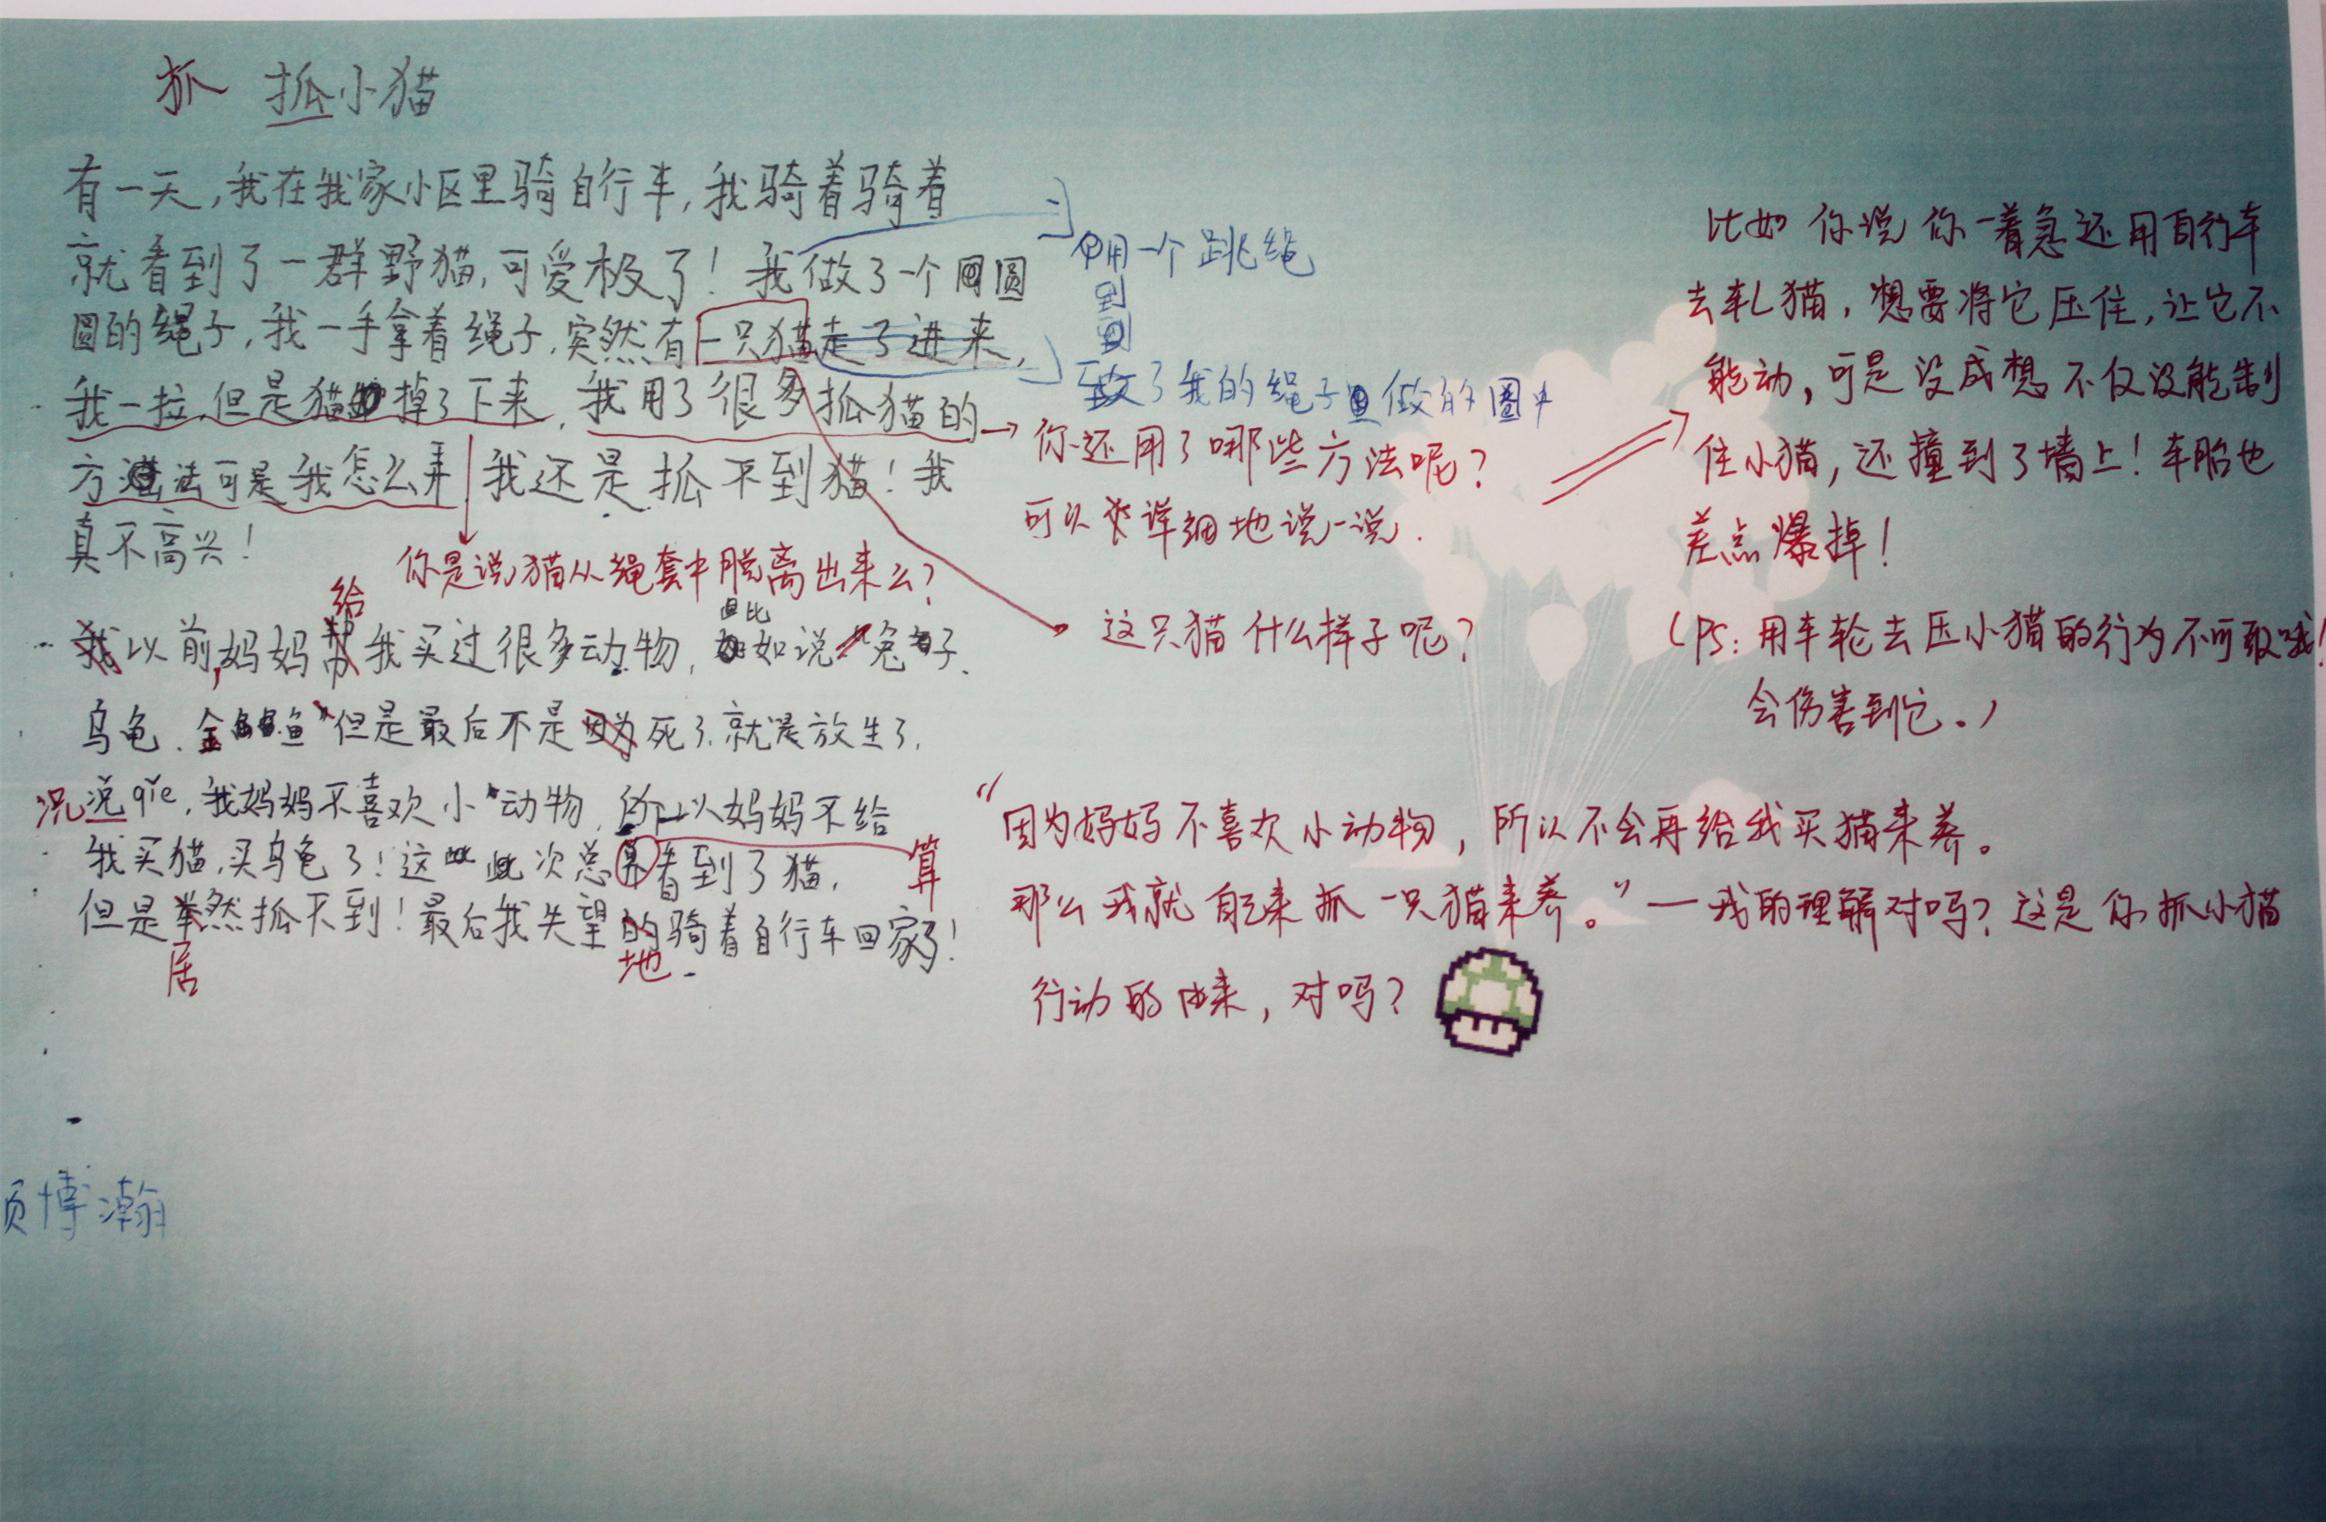 抓 抓小猫
有一天,我在我家小区里骑自行车,我骑着骑着
就看到了一群野猫,可爱极了!我做了一个圆
圆的绳子,我一手拿着绳子,突然有一只猫走了进来,
我一拉,但是猫掉了下来,我用了很多抓猫的
方法可是我怎么弄我还是抓不到猫!我
真不高兴!
用一个跳绳
到
了我的绳子做的圈中
你还用了哪些方法呢?
可以详细地说一说.
你是说猫从绳套中脱离出来么?
这只猫什么样子呢?
比如你说你一着急还用自行车
去轧猫,想要将它压住,让它不
能动,可是没成想不仅没能制
住小猫,还撞到了墙上!车胎也
差点爆掉!
(PS:用车轮去压小猫的行为不可取哦!
会伤害到它。)
给
比
我以前,妈妈帮我买过很多动物,如说兔子、
乌龟、金鱼但是最后不是因为死了,就是放生了,
况 说qiě,我妈妈不喜欢小动物,所以妈妈不给
我买猫,买乌龟了!这次总算看到了猫, 算
但是然抓不到!最后我失望的骑着自行车回家了!
居 地
“因为妈妈不喜欢小动物,所以不会再给我买猫来养。
那么我就自己来抓一只猫来养。”—我的理解对吗?这是你抓小猫
行动的由来,对吗?
博瀚